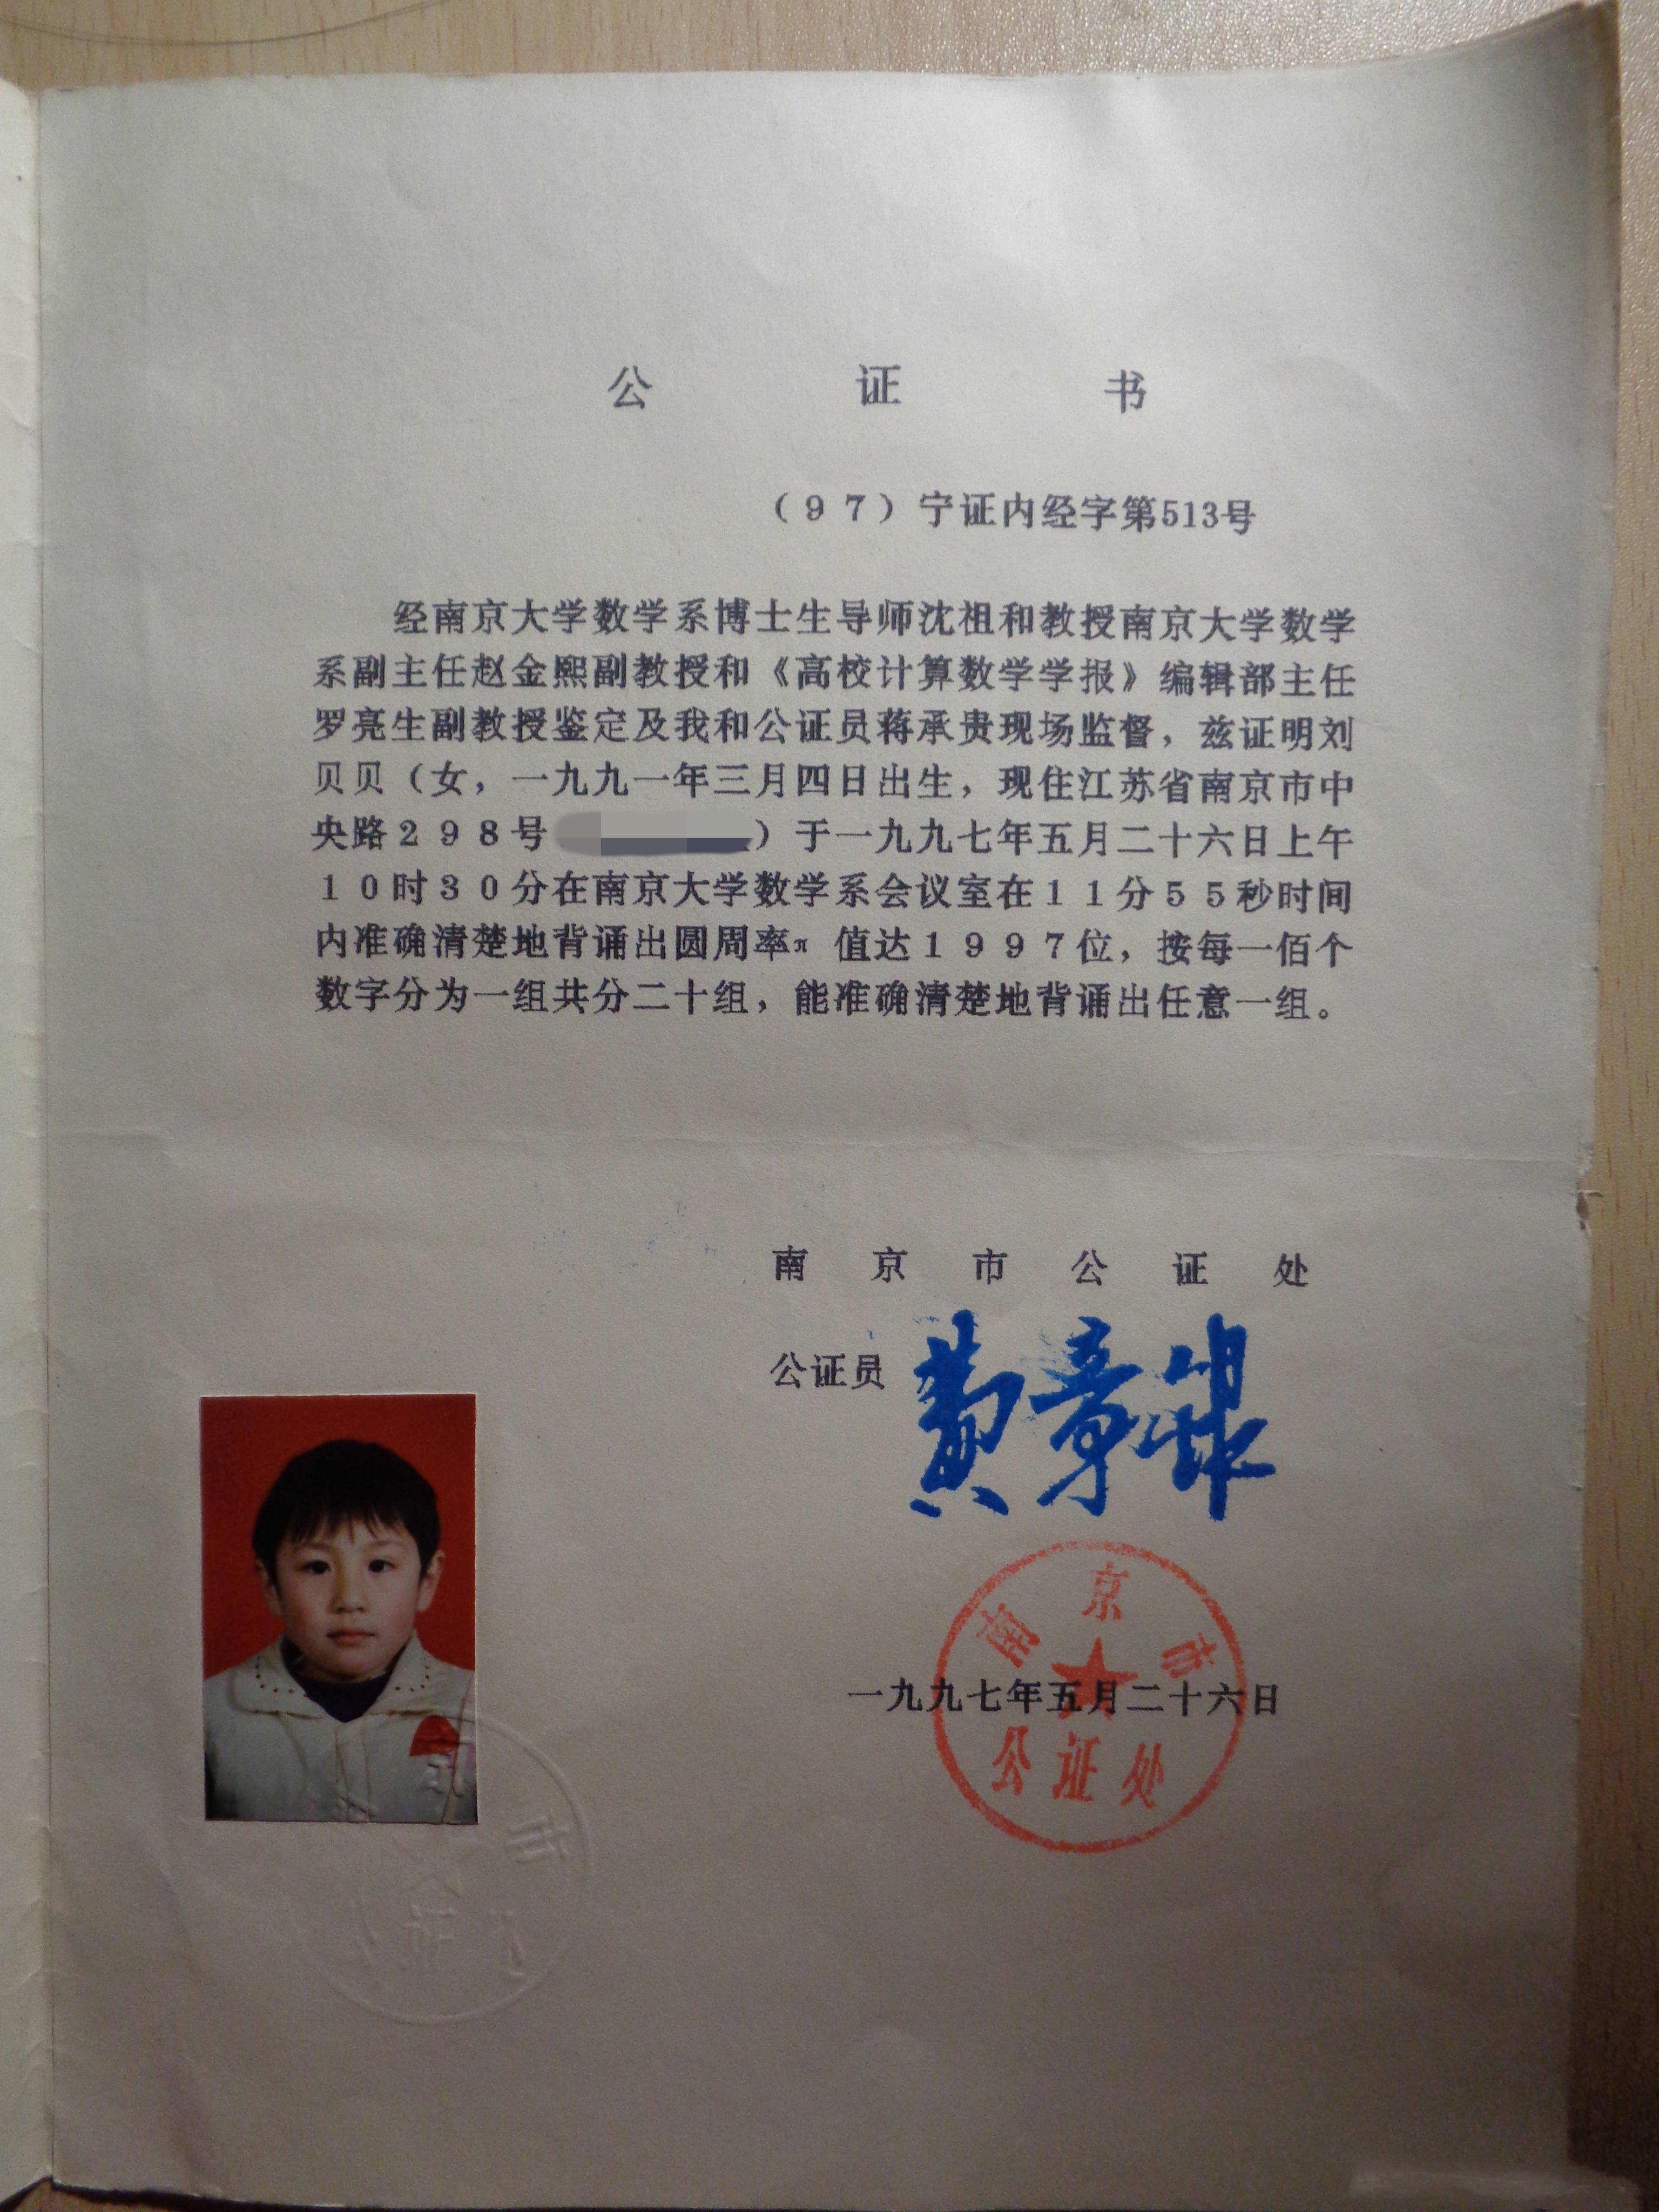 公证书
（９７）宁证内经字第513号
经南京大学数学系博士生导师沈祖和教授南京大学数学
系副主任赵金熙副教授和《高校计算数学学报》编辑部主任
罗亮生副教授鉴定及我和公证员蒋承贵现场监督，兹证明刘
贝贝（女，一九九一年三月四日出生，现住江苏省南京市中
央路２９８号）于一九九七年五月二十六日上午
１０时３０分在南京大学数学系会议室在１１分５５秒时间
内准确清楚地背诵出圆周率π值达１９９７位，按每一佰个
数字分为一组共分二十组，能准确清楚地背诵出任意一组。
南京市公证处
公证员 黄章
南京市
一九九七年五月二十六日
公证处